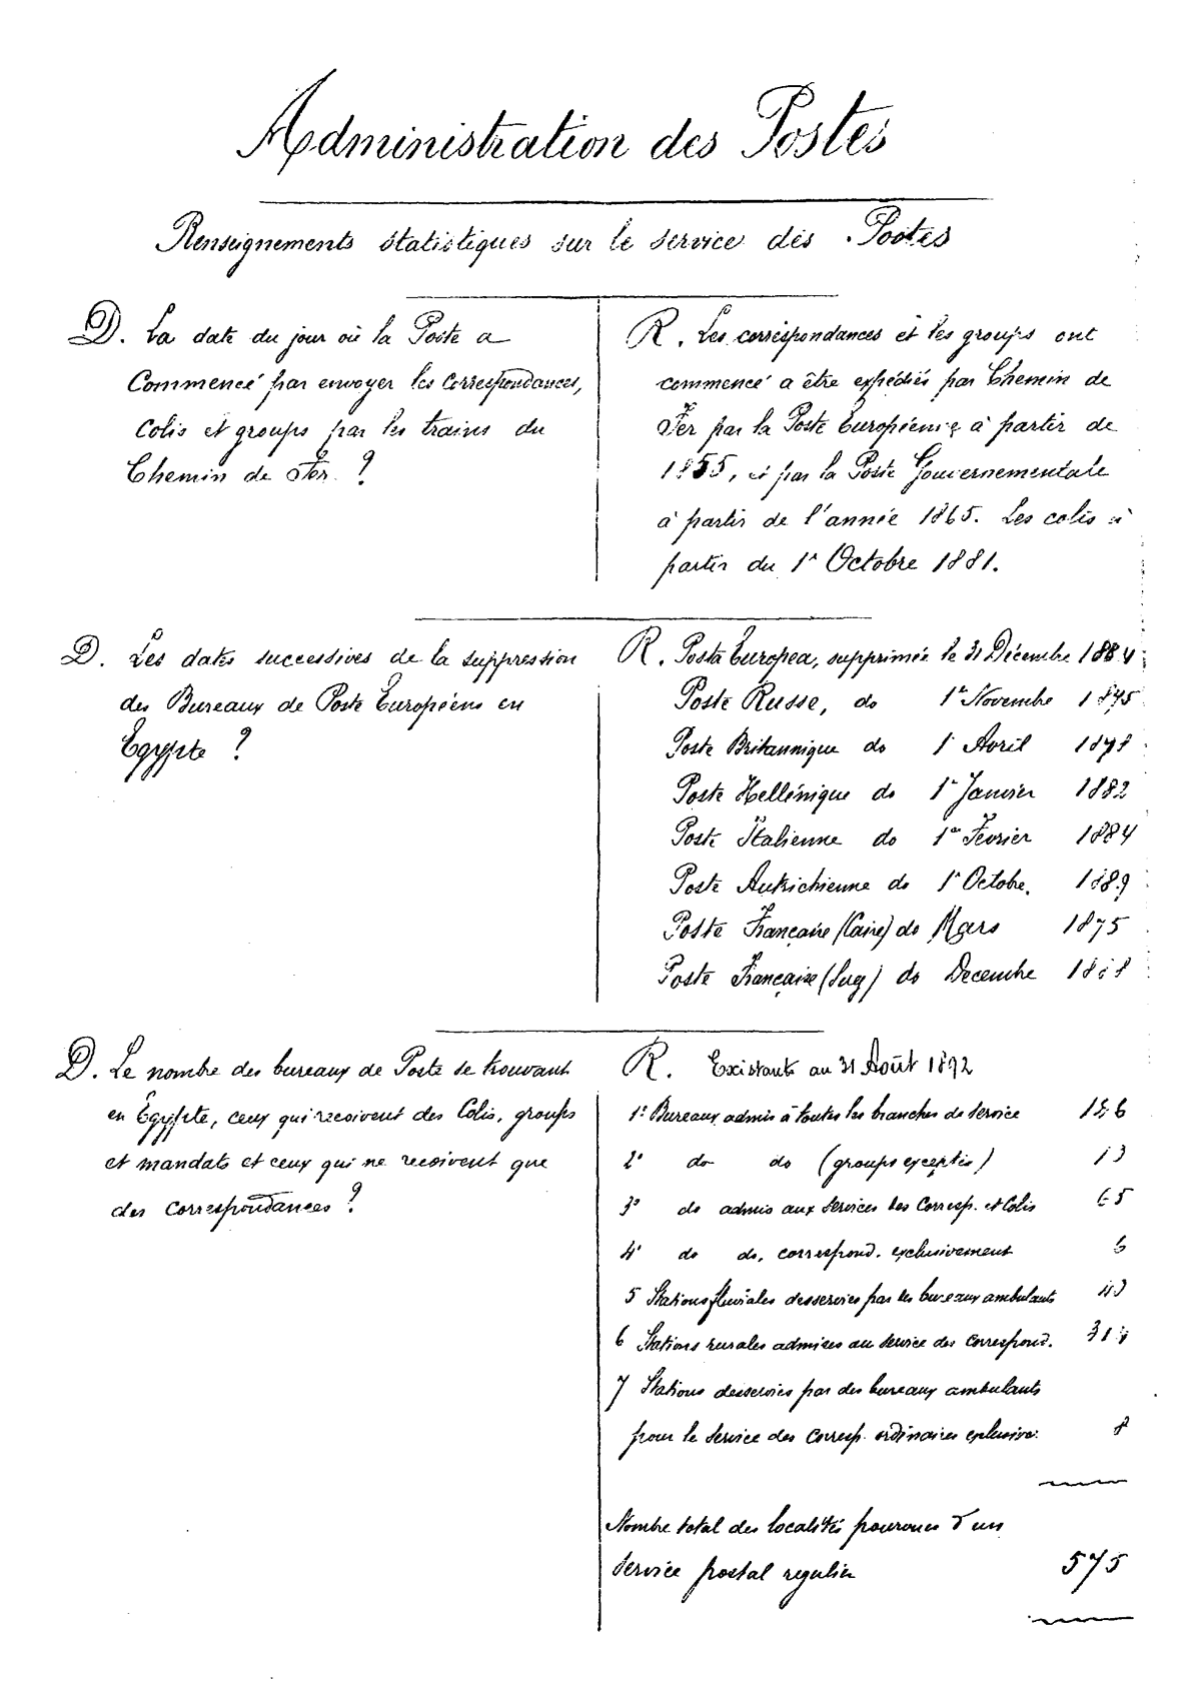 Administration des Postes
Renseignements statistiques sur le service des Postes
D. La date du jour où la Poste a
Commencé par envoyer les Correspondances,
Colis et groups par les trains du
Chemin de Fer ?
R. Les correspondances et les groups ont
commencé a être expédiés par Chemin de
Fer par la Poste Européenne à partir de
1855, et par la Poste Gouvernementale
à partir de l'année 1865. Les colis à
partir du 1er Octobre 1881.
D. Les dates successives de la suppression
des Bureaux de Poste Européens en
Egypte ?
R. Posta Europea, supprimée le 31 Décembre
Poste Russe, do 1er Novembre 1875
Poste Britannique do 1 Avril 1878
Poste Hellénique do 1er Janvier 1882
Poste Italienne do 1er Fevrier 1884
Poste Autrichienne do 1er Octobre. 1889
Poste Francaise (Caire) do Mars 1875
Poste Francaise (Sug) do Decembre
D. Le nombre des bureaux de Poste se trouvant
en Egypte, ceux qui recoivent des Colis, groups
et mandats et ceux qui ne recoivent que
des Correspondances ?
R. Existants au 31 Août 1892
1° Bureaux admis à toutes les branches de service
2° do do (groups exceptés) 13
3° do admis aux services des Corresp. et Colis 65
4° do do, correspond. exclusivement 6
5 Stations fluviales desservies par les bureaux ambulants
6 Stations rurales admises au service des Correspond.
7 Stations desservies par des bureaux ambulants
pour le service des Corresp. ordinaires 8
Nombre total des localités pourvues d'un
service postal regulier 575